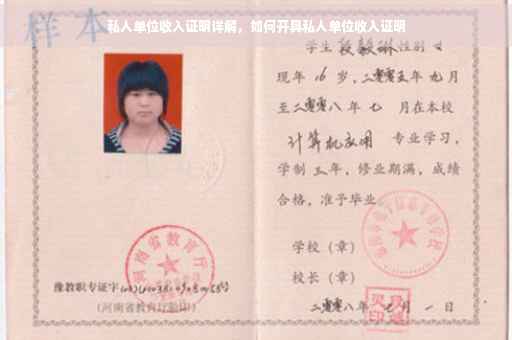 私人单位收入证明详解，如何开具私人单位收入证明
样本
学生 段毅琳 性别 女
现年 16 岁，二零零五年 九 月
至二零零八年 七 月在本校
计算机应用 专业学习，
学制 三 年，修业期满，成绩
合格，准予毕业。
学校（章）
校长（章）
二零零八年 七 月 一 日
河南省教育厅
豫教职专证字
（河南省教育厅验印）